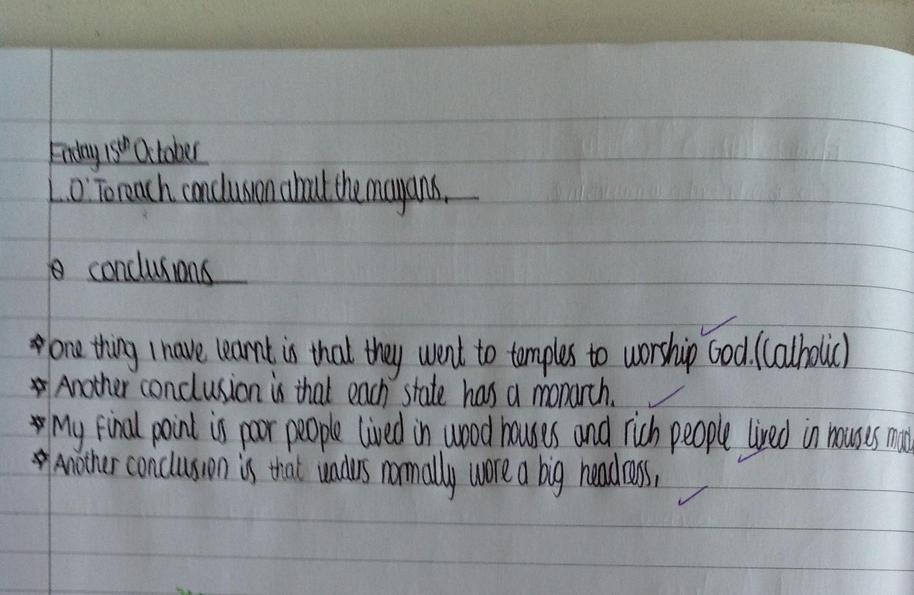 Friday 15th October
L.O: To reach conclusion about the mayans.
conclusions
One thing I have learnt is that they went to temples to worship God. (Catholic)
Another conclusion is that each state has a monarch.
My final point is poor people lived in wood houses and rich people lived in houses
Another conclusion is that leaders normally wore a big headress.